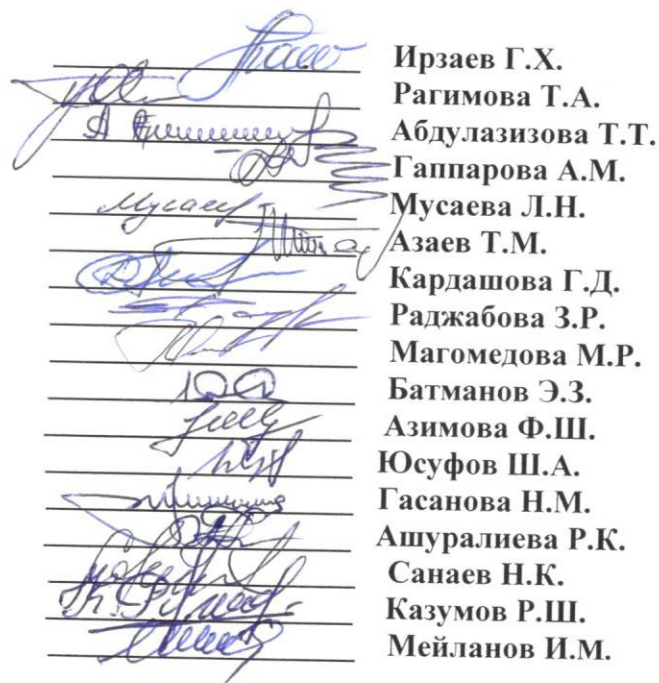 Ирзаев Г.Х.
Рагимова Т.А.
Абдулазизова Т.Т.
Гаппарова А.М.
Мусаева Л.Н.
Азаев Т.М.
Кардашова Г.Д.
Раджабова З.Р.
Магомедова М.Р.
Батманов Э.З.
Азимова Ф.Ш.
Юсуфов Ш.А.
Гасанова Н.М.
Ашуралиева Р.К.
Санаев Н.К.
Казумов Р.Ш.
Мейланов И.М.